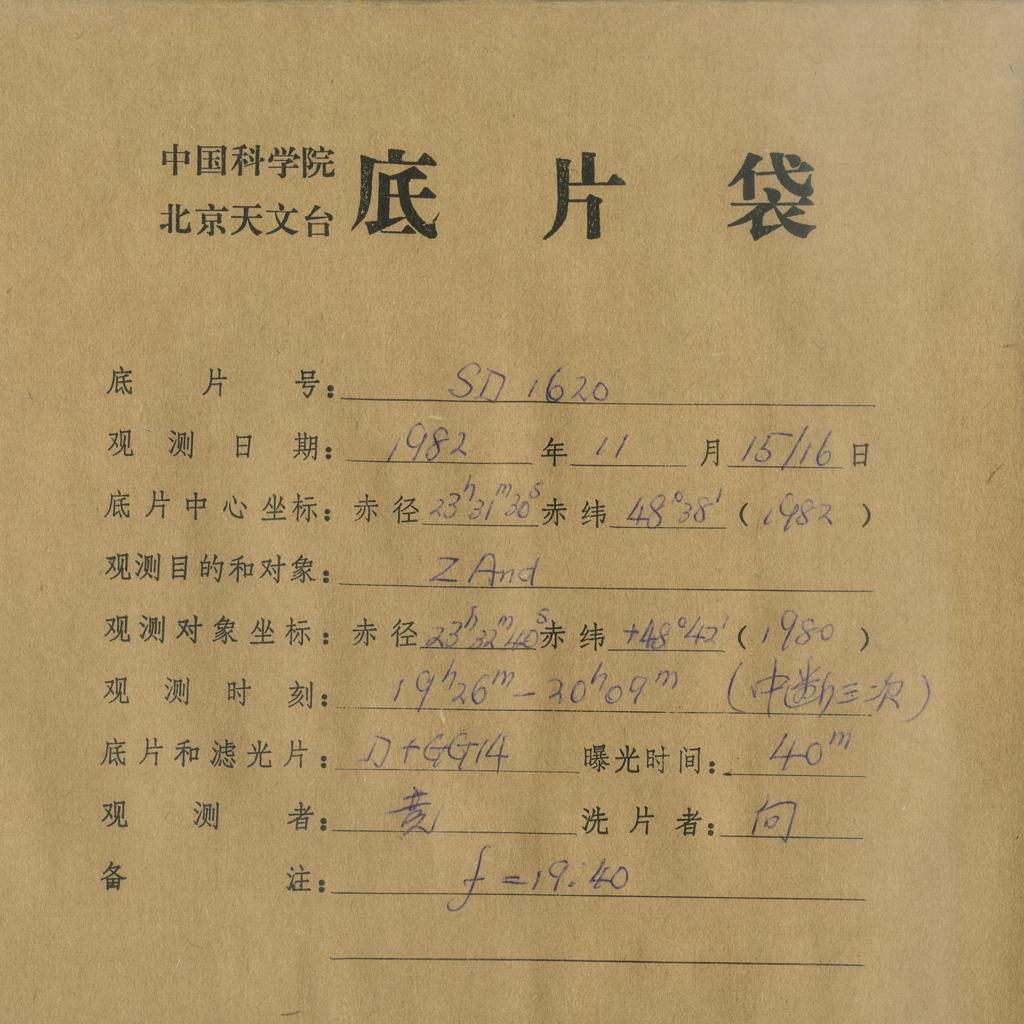 中国科学院
北京天文台
底片袋
底片号: SD 1620
观测日期: 1982 年 11 月 15/16 日
底片中心坐标: 赤径 23h31m30s 赤纬 48°38′ (1982)
观测目的和对象: Z And
观测对象坐标: 赤径 23h32m40s 赤纬 +48°42′ (1980)
观测时刻: 19h26m—20h09m (中断三次)
底片和滤光片: D+GG14 曝光时间: 40m
观测者: 黄 洗片者: 向
备注: f=19.40